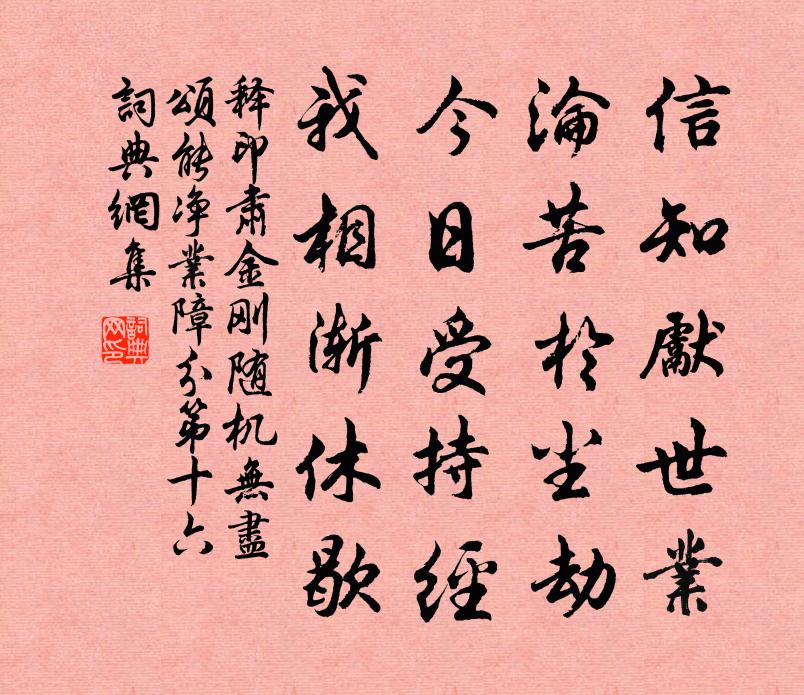 信知獻世業
淪苦於尘劫
今日受持經
我相漸休歇
释印肅金刚随机無盡
頌能净業障分第十六
詞典網集
詞典网印